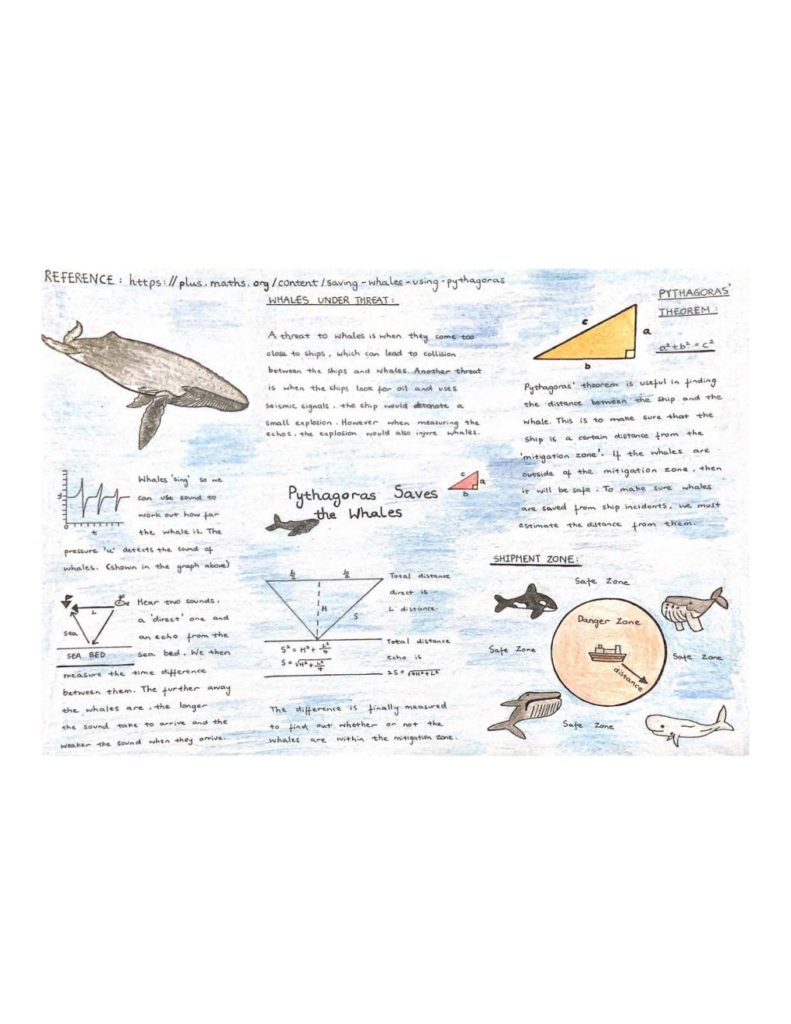 REFERENCE : https://plus.maths.org/content/saving-whales-using-pythagoras
WHALES UNDER THREAT:
A threat to whales is when they come too
close to ships, which can lead to collision
between the ships and whales. Another threat
is when the ships look for oil and uses
seismic signals, the ship would detonate a
small explosion. However when measuring the
echos, the explosion would also injure whales.
PYTHAGORAS'
THEOREM:
a²+b²=c²
c
a
b
Pythagoras' theorem is useful in finding
the distance between the ship and the
whale. This is to make sure that the
ship is a certain distance from the
'mitigation zone'. If the whales are
outside of the mitigation zone, then
it will be safe. To make sure whales
are saved from ship incidents, we must
estimate the distance from them.
t
Whales 'sing' so we
can use sound to
work out how far
the whale is. The
pressure 'u' detects the sound of
whales. (shown in the graph above)
Pythagoras Saves
the Whales
c
a
b
L
sea
SEA BED
Hear two sounds,
a 'direct' one and
an echo from the
sea bed. We then
measure the time difference
between them. The further away
the whales are, the longer
the sound take to arrive and the
weaker the sound when they arrive.
L/2
L/2
H
S
S² = H² + L²/4
S = √H² + L²/4
Total distance
direct is
L distance.
Total distance
echo is
2S = √4H²+L²
The difference is finally measured
to find out whether or not the
whales are within the mitigation zone.
SHIPMENT ZONE:
Safe Zone
Danger Zone
Safe Zone
Safe Zone
distance
Safe Zone